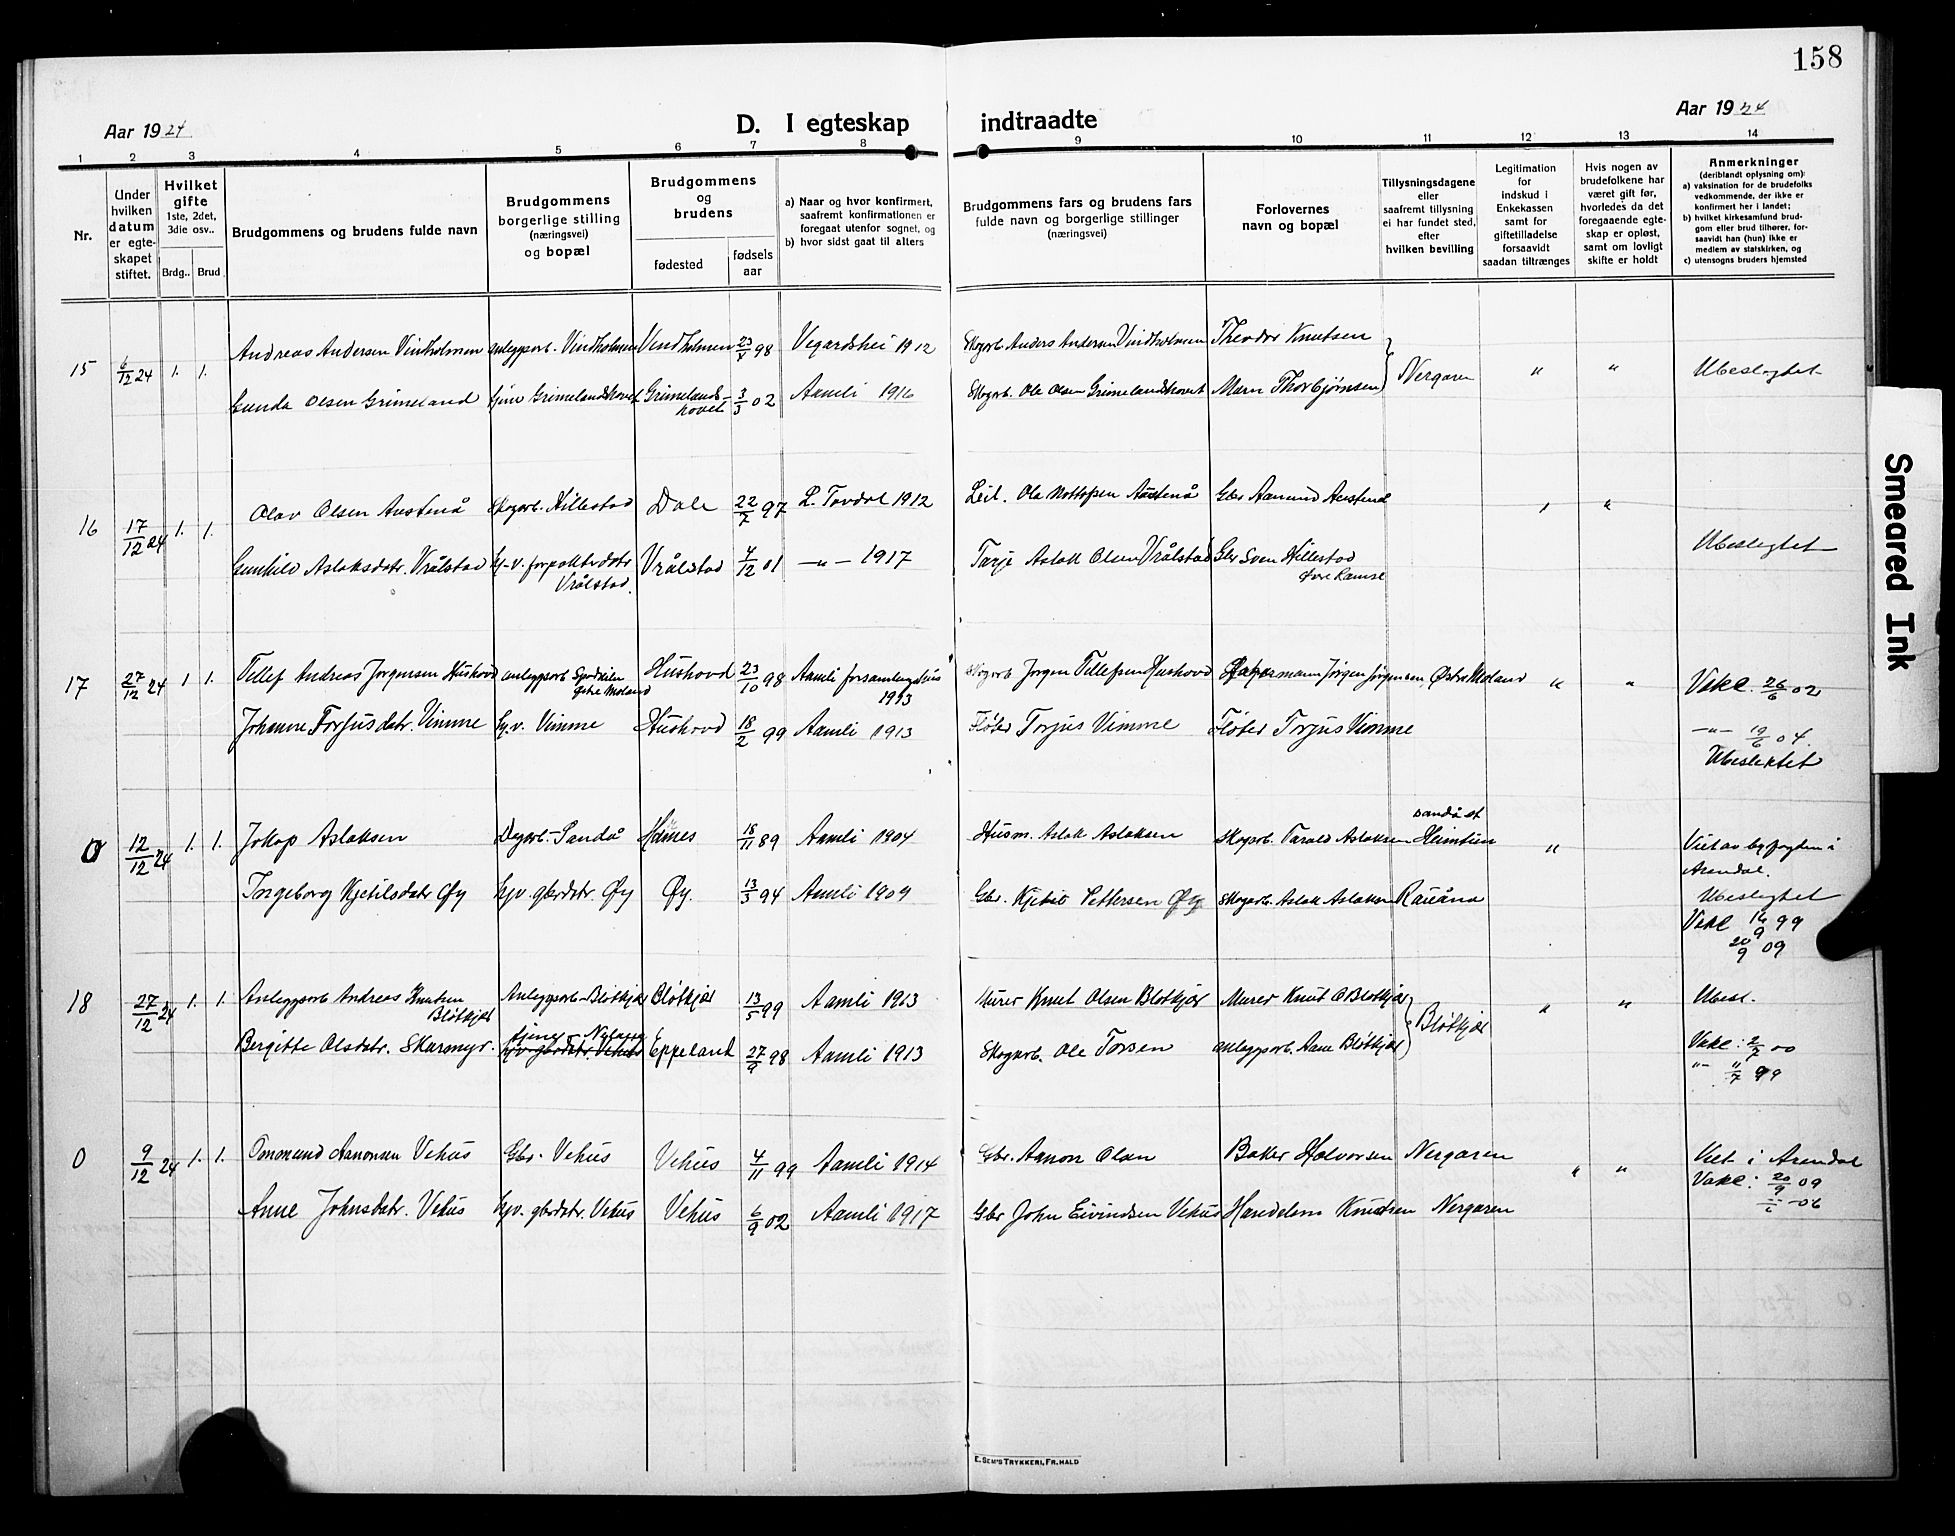 158
Aar 1924
D. I egteskap indtraadte
Aar 1924
1 2 3 4 5 6 7 8 9 10 11 12 13 14
Nr.
Under hvilken datum er egteskapet stiftet.
Hvilket gifte
1ste, 2det, 3die osv..
Brdg.. Brud
Brudgommens og brudens fulde navn
Brudgommens borgerlige stilling (næringsvei) og bopæl
Brudgommens og brudens
fødested
fødsels aar
a) Naar og hvor konfirmert, saafremt konfirmationen er foregaat utenfor sognet, og
b) hvor sidst gaat til alters
Brudgommens fars og brudens fars fulde navn og borgerlige stillinger (næringsvei)
Forlovernes navn og bopæl
Tillysningsdagene eller saafremt tillysning ei har fundet sted, efter hvilken bevilling
Legitimation for indskud i Enkekassen samt for giftetilladelse forsaavidt saadan tiltrænges
Hvis nogen av brudefolkene har været gift før, hvorledes da det foregaaende egteskap er opløst, samt om lovligt skifte er holdt
Anmerkninger
(deriblandt oplysning om):
a) vaksination for de brudefolks vedkommende, der ikke er konfirmert her i landet;
b) hvilket kirkesamfund brudgom eller brud tilhører, forsaavidt han (hun) ikke er medlem av statskirken, og
c) utensogns bruders hjemsted
15 6/12 24 1. 1. Andreas Andersen Vindholmen anleggsarb. Vindholmen Vindholmen 23/4 98 Vegardshei 1912 Skogarb. Anders Andersen Vindholmen Theodor Knutsen
Gunda Olsen Grimeland tjen. Grimelandshovet Grimelands-hovet 3/3 02 Aamli 1916 Skogarb. Ole Olsen Grimelandshovet Marn Thorbjørnsen Nergaren " " Ubeslegtet
16 17/12 24 1. 1. Olav Olsen Austenå Skogarb. Hillestad Dale 22/7 97 L. Tovdal 1912 Leil. Ola Nottofsen Austenå Gbr Aanund Austenå
Gunhild Aslaksdatr. Vrålstad hj-v. Vrålstad. Vrålstad 4/12 01 -"- 1917 Tarje Aslak Olsen Vrålstad Gbr Sven Hillestad Øvre Ramse " Ubeslegtet
17 27/12 24 1 1. Tellef Andreas Jørgensen Hushovd anleggsarb. Østre Moland Hushovd 23/10 98 Aamli forsamlingshus 1913 Skogarb Jørgen Tellefsen Hushovd Jørgen Jørgensen, Østre Moland " " Vakc. 26/6 02
Johanne Torjusdatr. Vimme hj.v. Vimme Hushovd 18/2 99 Aamli 1913 Fløter Torjus Vimme Fløter Torjus Vimme -"- 19/6 04.
Ubeslektet
0 12/12 24 1. 1. Jakop Aslaksen Dagarb.- Sandå 18/11 89 Aamli 1904 Husm. Aslak Aslaksen Skogarb. Tarald Aslaksen Heimtun " Viet av byfogden i Arendal.
Ingeborg Kjetilsdatr Øy hjv. gbrdatr. Øy Øy. 13/3 94 Aamli 1909 Gbr. Kjetil Pettersen Øy Skogarb. Aslak Aslaksen Rauåna Ubeslegtet
Vakc 16/9 99
20/9 09
18 27/12 24 1. 1. Anleggsarb Andreas Knutsen Bløtkjær Anleggsarb- Bløtkjær Bløtkjær 13/5 99 Aamli 1913 Murer Knut Olsen Bløtkjær Murer Knut O Bløtkjær Bløtkjær " " Ubesl.
Bergitte Olsdatr. Skarmyr. Eppeland 27/9 98 Aamli 1913 Skogarb. Ole Torsen anleggsarb. Aane Bløtkjær Vakc: 2/7 00
"- 11/7 99
0 9/12 24 1. 1. Ommund Aanonsen Vehus Gbr. Vehus Vehus 4/11 99 Aamli 1914 Gbr. Aanon Olsen Baker Halvorsen Nergaren " " Viet i Arendal
Anne Johnsdatr. Vehus hjv. gbrdatr. Vehus Vehus 6/9 02 Aamli 1917 Gbr John Eivindsen Vehus Handelsm Knutsen Nergaren Vakc: 20/9 09
-06
E. SEM'S TRYKKERI, FR.HALD
Smeared Ink